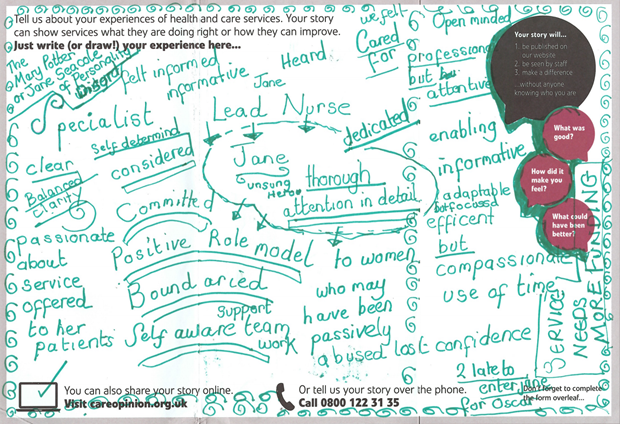 Tell us about your experiences of health and care services. Your story
can show services what they are doing right or how they can improve.
Just write (or draw!) your experience here...
The
Mary Potter
or Jane Seacole
of Personality
Disord
felt informed
informative
Heard
Jane
we felt
Cared
for
Open minded
professional
but
attentive
Specialist
Lead Nurse
dedicated
enabling
informative
adaptable
but focussed
efficent
but
compassionate
use of time
clear
Balanced
clarity
Self determind
considered
Jane
unsung
Hero
thorough
attention in detail
Committed
Positive Role model to women
who may
have been
passively
abused lost confidence
passionate
about
service
offered
to her
patients
Boundaried
support
Self aware team
work
2 late to
enter Jane
for Oscar
SERVICE
NEEDS
MORE FUNDING
Your story will...
1. be published on
our website
2. be seen by staff
3. make a difference
...without anyone
knowing who you are
What was
good?
How did it
make you
feel?
What could
have been
better?
You can also share your story online.
Visit careopinion.org.uk
Or tell us your story over the phone.
Call 0800 122 31 35
Don't forget to complete
the form overleaf...